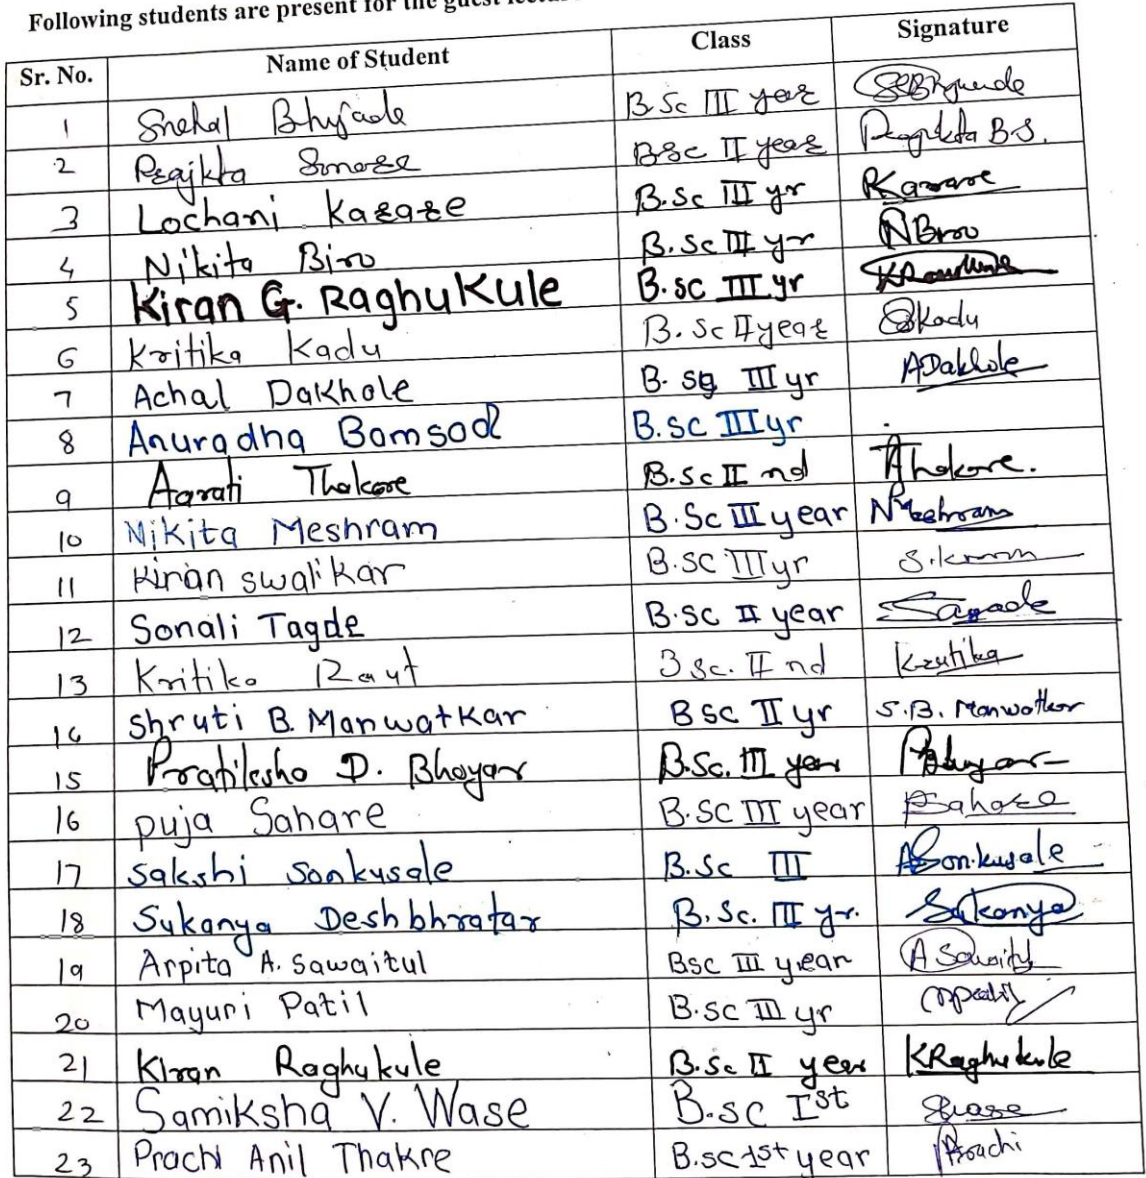 Following students are present for the guest
Sr. No. Name of Student Class Signature
1 Snehal Bhujade B.Sc III year
2 Prajkta Smorze BSc II year Prajkta B.S.
3 Lochani Kazaze B.Sc III yr
4 Nikita Biro B.Sc III yr NBiro
5 Kiran G. Raghukule B.SC III yr
6 Kritika Kadu B.Sc II year Kadu
7 Achal Dakhole B. Sc III yr ADakhole
8 Anuradha Bamsod B.SC III yr
9 Aarati Thakare B.Sc II nd Thakore.
10 Nikita Meshram B.Sc III year NMeshram
11 Kiran swalikar B.SC III yr
12 Sonali Tagde B.SC II year
13 Kritika Raut B sc. II nd Krutika
14 Shruti B. Manwatkar BSC II yr S.B. Manwatkar
15 Pratiksha D. Bhoyar B.Sc. III year
16 puja Sahare B.SC III year PSahare
17 Sakshi Sonkusale B.Sc III Sonkusale
18 Sukanya Deshbhratar B.Sc. III yr. Sukanya
19 Arpita A. Sawaitul Bsc III year
20 Mayuri Patil B.SC III yr
21 Kiran Raghukule B.Sc II year KRaghukule
22 Samiksha V. Wase B.SC Ist
23 Prachi Anil Thakre B.sc 1st year Prachi